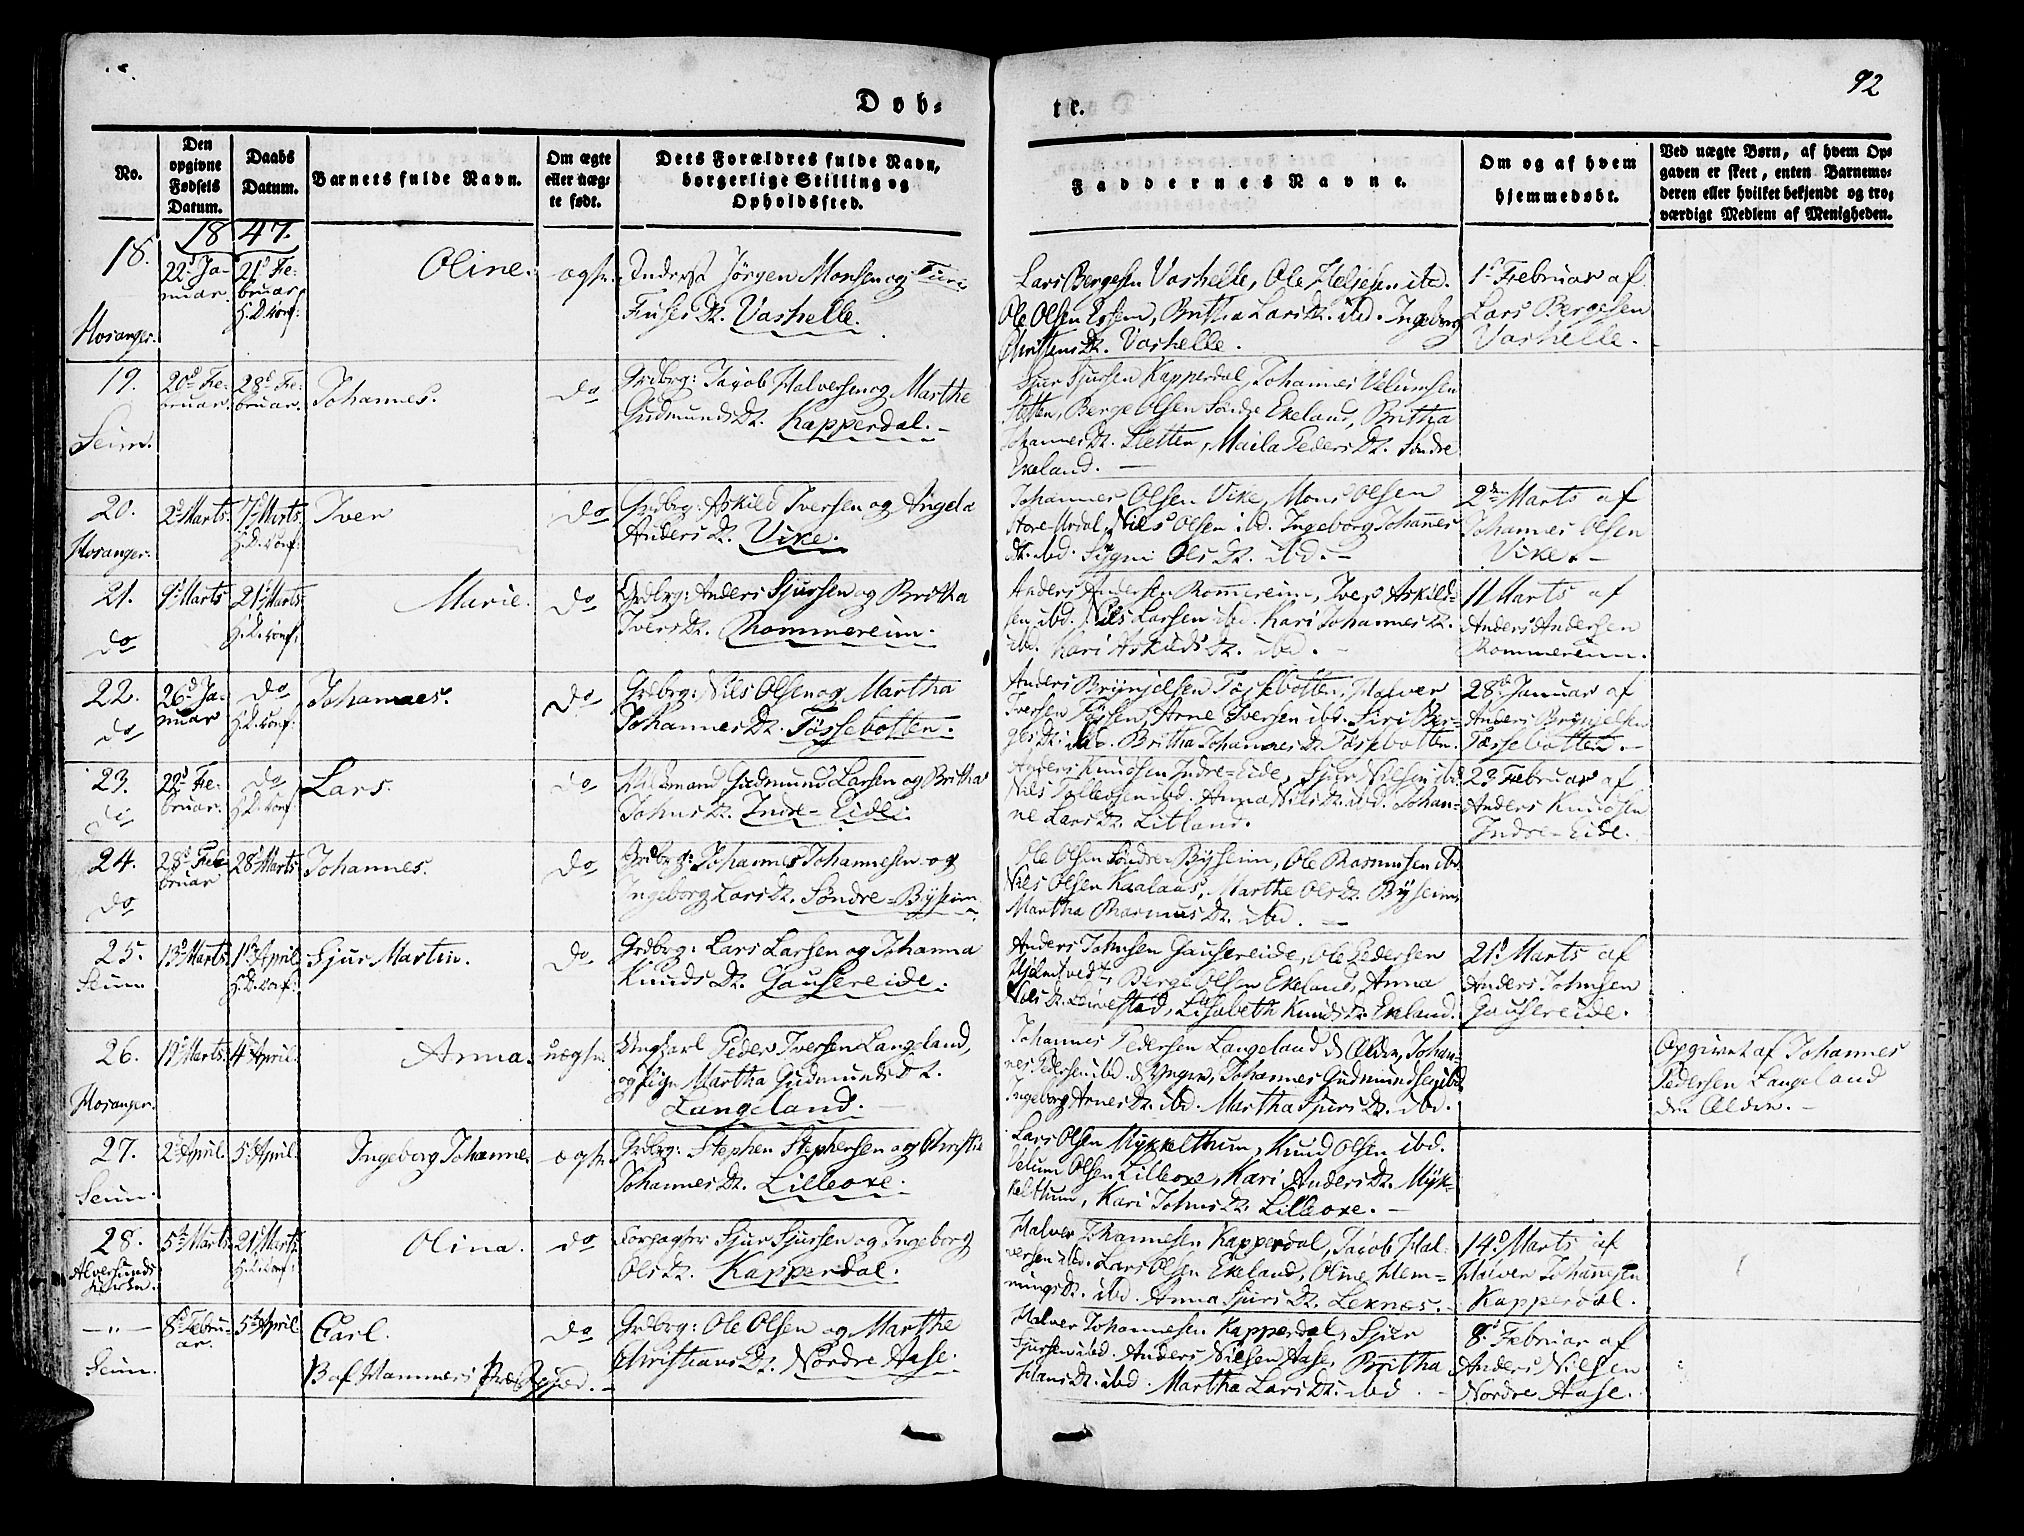 92
Døb-
te.
No.
Den
opgivne
Fødsels
Datum.
Daabs
Datum.
Barnets fulde Navn.
Om ægte
eller uæg-
te født.
Dets Forældres fulde Navn,
borgerlige Stilling og
Opholdssted.
Faddernes Navne.
Om og af hvem
hjemmedøbt.
Ved uægte Børn, af hvem Op-
gaven er skeet, enten Barnemo-
deren eller hvilket bekjendt og tro-
værdigt Medlem af Menigheden.
1847.
18.
Hosanger.
22d Ja-
nuar.
21d Fe-
bruar
H.D. conf:
Oline.
ægte.
Inderst Jörgen Monsen og
Vashelle.
Lars Bergesen Vashelle, Ole Heljesen ibd.
Ole Olsen Espen, Britha Larsdt. ibd. Ingeborg
Christensdt. Vashelle.
1d Februar af
Lars Bergesen
Vashelle.
19.
Seim.
20d Fe-
bruar.
28d Fe-
bruar.
Johannes.
do
Grdbrg: Jacob Halversen og Marthe
Gudmundsdt. Kapperdal.
Sjur Sjursen Kapperdal, Johannes Velumsen
Sletten, Berge Olsen Søndre Ekeland, Britha
Johannesdt. Sletten, Maila Pedersdt. Søndre
Ekeland.
20.
Hosanger.
2d Marts.
7d Marts.
H.D. conf:
Iver
do
Grdbrg: Askild Iversen og Angela
Andersdt. Vike.
Johannes Olsen Vike, Mons Olsen
Store-Urdal, Nils Olsen ibd. Ingeborg Johannes
dt. ibd. Sygni Olsdt. ibd.
2den Marts af
Johannes Olsen
Vike.
21.
do
9d Marts
21d Marts
H.D. conf:
Marie.
do
Grdbrg: Anders Sjursen og Britha
Iversdt. Rommereim.
Anders Andersen Rommereim, Iver Askild-
sen ibd. Nils Larsen ibd. Kari Johannesdt.
ibd. Kari Askildsdt. ibd.
11 Marts af
Anders Andersen
Rommereim.
22.
do
26d Ja-
nuar
do
H.D. conf:
Johannes.
do
Grdbrg: Nils Olsen og Martha
Johannesdt. Tøssebotten.
Anders Brynjelsen Tøssebotten, Halver
Iversen Tøssen, Arne Iversen ibd. Siri Ber-
gesdt. ibd. Britha Johannesdt. Tøssebotten.
28d Januar af
Anders Brynjelsen
Tøssebotten.
23.
22d Fe-
bruar.
do
H.D. conf:
Lars.
do
Gudmund Larsen og Britha
Johnsdt. Indre-Eide.
Anders Knudsen Indre-Eide, Sjur Nilsen ibd.
Nils Tollevsen ibd. Anna Nilsdt. ibd. Johan-
ne Larsdt. Litland.
23d Februar af
Anders Knudsen
Indre-Eide.
24.
do
28d Feb-
bruar
28d Marts
Johannes.
do
Grdbrg: Johannes Johannesen og
Ingeborg Larsdt. Søndre-Byseim.
Ole Olsen Søndre Byseim, Ole Rasmusen ibd.
Nils Olsen Kaalaas, Marthe Olsdt. Byseim,
Martha Rasmusdt. ibd.
25.
Seim
13d Marts
1ste April.
H.D. conf:
Sjur Martin.
do
Grdbrg: Lars Larsen og Johanna
Knudsdt. Gausereide.
Anders Johnsen Gausereide, Ole Pedersen
Hjelmtvedt, Berge Olsen Ekeland, Anna
Nilsdt. Lisabeth Knudsdt. Ekeland.
21d Marts af
Anders Johnsen
Gausereide.
26.
Hosanger.
12d Marts.
4d April.
Anna.
uægte.
Ungkarl Peder Iversen Langeland,
og Pige Martha Gudmundsdt.
Langeland.
Johannes Pedersen Langeland d. Ældre, Johan-
nes Pedersen ibd. d. Yngre, Johannes Gudmundsen ibd.
Ingeborg Arnesdt. ibd. Martha Sjursdt. ibd.
Opgivet af Johannes
Pedersen Langeland
den Ældre.
27.
Seim.
2d April.
5d April.
Ingeborg Johanne.
ægte.
Grdbrg: Stephen Stephensen og Christie
Johannesdt. Lilleoxe.
Lars Olsen Mykkelthum, Knud Olsen ibd.
Velum Olsen Lilleoxe, Kari Andersdt. Myk-
kelthum, Kari Johnsdt. Lilleoxe.
28.
Alversunds
Kirken.
5d Marts
21d Marts
H.D. conf:
Olina.
do
Forpagter Sjur Sjursen og Ingeborg
Olsdt. Kapperdal.
Halver Johannesen Kapperdal, Jacob Hal-
versen ibd. Lars Olsen Ekeland, Oline Hem-
mingsdt. ibd. Anna Sjursdt. Leknæs.
14d Marts af
Halver Johannesen
Kapperdal.
-"-
Seim.
8d Febru-
ar.
5d April.
Carl.
B. af Hammers Præstegjeld.
do
Grdbrg: Ole Olsen og Marthe
Christiansdt. Nordre Aase.
Halver Johannesen Kapperdal, Sjur
Sjursen ibd. Anders Nilsen Aase, Britha
Hansdt. ibd. Martha Larsdt. ibd.
8d Februar af
Anders Nilsen
Nordre Aase.